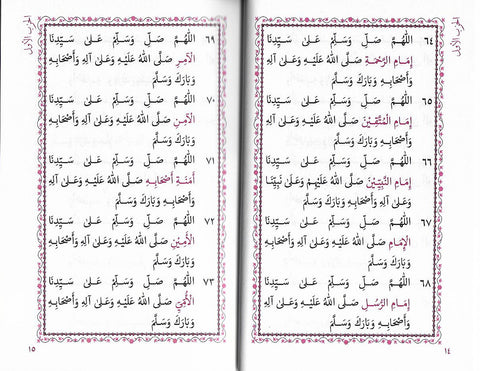 الحزب الأول
٦٤ اللَّهُمَّ صَلِّ وَسَلِّمْ عَلَىٰ سَيِّدِنَا
إِمَامِ الرَّحْمَةِ صَلَّى اللَّهُ عَلَيْهِ وَعَلَىٰ آلِهِ
وَأَصْحَابِهِ وَبَارَكَ وَسَلَّمَ
٦٥ اللَّهُمَّ صَلِّ وَسَلِّمْ عَلَىٰ سَيِّدِنَا
إِمَامِ الْمُتَّقِيْنَ صَلَّى اللَّهُ عَلَيْهِ وَعَلَىٰ آلِهِ
وَأَصْحَابِهِ وَبَارَكَ وَسَلَّمَ
٦٦ اللَّهُمَّ صَلِّ وَسَلِّمْ عَلَىٰ سَيِّدِنَا
إِمَامِ النَّبِيِّيْنَ صَلَّى اللَّهُ عَلَيْهِمْ وَعَلَىٰ نَبِيِّنَا
وَعَلَىٰ آلِهِ وَأَصْحَابِهِ وَبَارَكَ وَسَلَّمَ
٦٧ اللَّهُمَّ صَلِّ وَسَلِّمْ عَلَىٰ سَيِّدِنَا
الْإِمَامِ صَلَّى اللَّهُ عَلَيْهِ وَعَلَىٰ آلِهِ وَأَصْحَابِهِ
وَبَارَكَ وَسَلَّمَ
٦٨ اللَّهُمَّ صَلِّ وَسَلِّمْ عَلَىٰ سَيِّدِنَا
إِمَامِ الرُّسُلِ صَلَّى اللَّهُ عَلَيْهِ وَعَلَىٰ آلِهِ
وَأَصْحَابِهِ وَبَارَكَ وَسَلَّمَ
١٤
الحزب الأول
٦٩ اللَّهُمَّ صَلِّ وَسَلِّمْ عَلَىٰ سَيِّدِنَا
الْآمِرِ صَلَّى اللَّهُ عَلَيْهِ وَعَلَىٰ آلِهِ وَأَصْحَابِهِ
وَبَارَكَ وَسَلَّمَ
٧٠ اللَّهُمَّ صَلِّ وَسَلِّمْ عَلَىٰ سَيِّدِنَا
الْآمِنِ صَلَّى اللَّهُ عَلَيْهِ وَعَلَىٰ آلِهِ وَأَصْحَابِهِ
وَبَارَكَ وَسَلَّمَ
٧١ اللَّهُمَّ صَلِّ وَسَلِّمْ عَلَىٰ سَيِّدِنَا
أَمَنَةِ أَصْحَابِهِ صَلَّى اللَّهُ عَلَيْهِ وَعَلَىٰ آلِهِ
وَأَصْحَابِهِ وَبَارَكَ وَسَلَّمَ
٧٢ اللَّهُمَّ صَلِّ وَسَلِّمْ عَلَىٰ سَيِّدِنَا
الْأَمِيْنِ صَلَّى اللَّهُ عَلَيْهِ وَعَلَىٰ آلِهِ وَأَصْحَابِهِ
وَبَارَكَ وَسَلَّمَ
٧٣ اللَّهُمَّ صَلِّ وَسَلِّمْ عَلَىٰ سَيِّدِنَا
الْأُمِّيِّ صَلَّى اللَّهُ عَلَيْهِ وَعَلَىٰ آلِهِ وَأَصْحَابِهِ
وَبَارَكَ وَسَلَّمَ
١٥